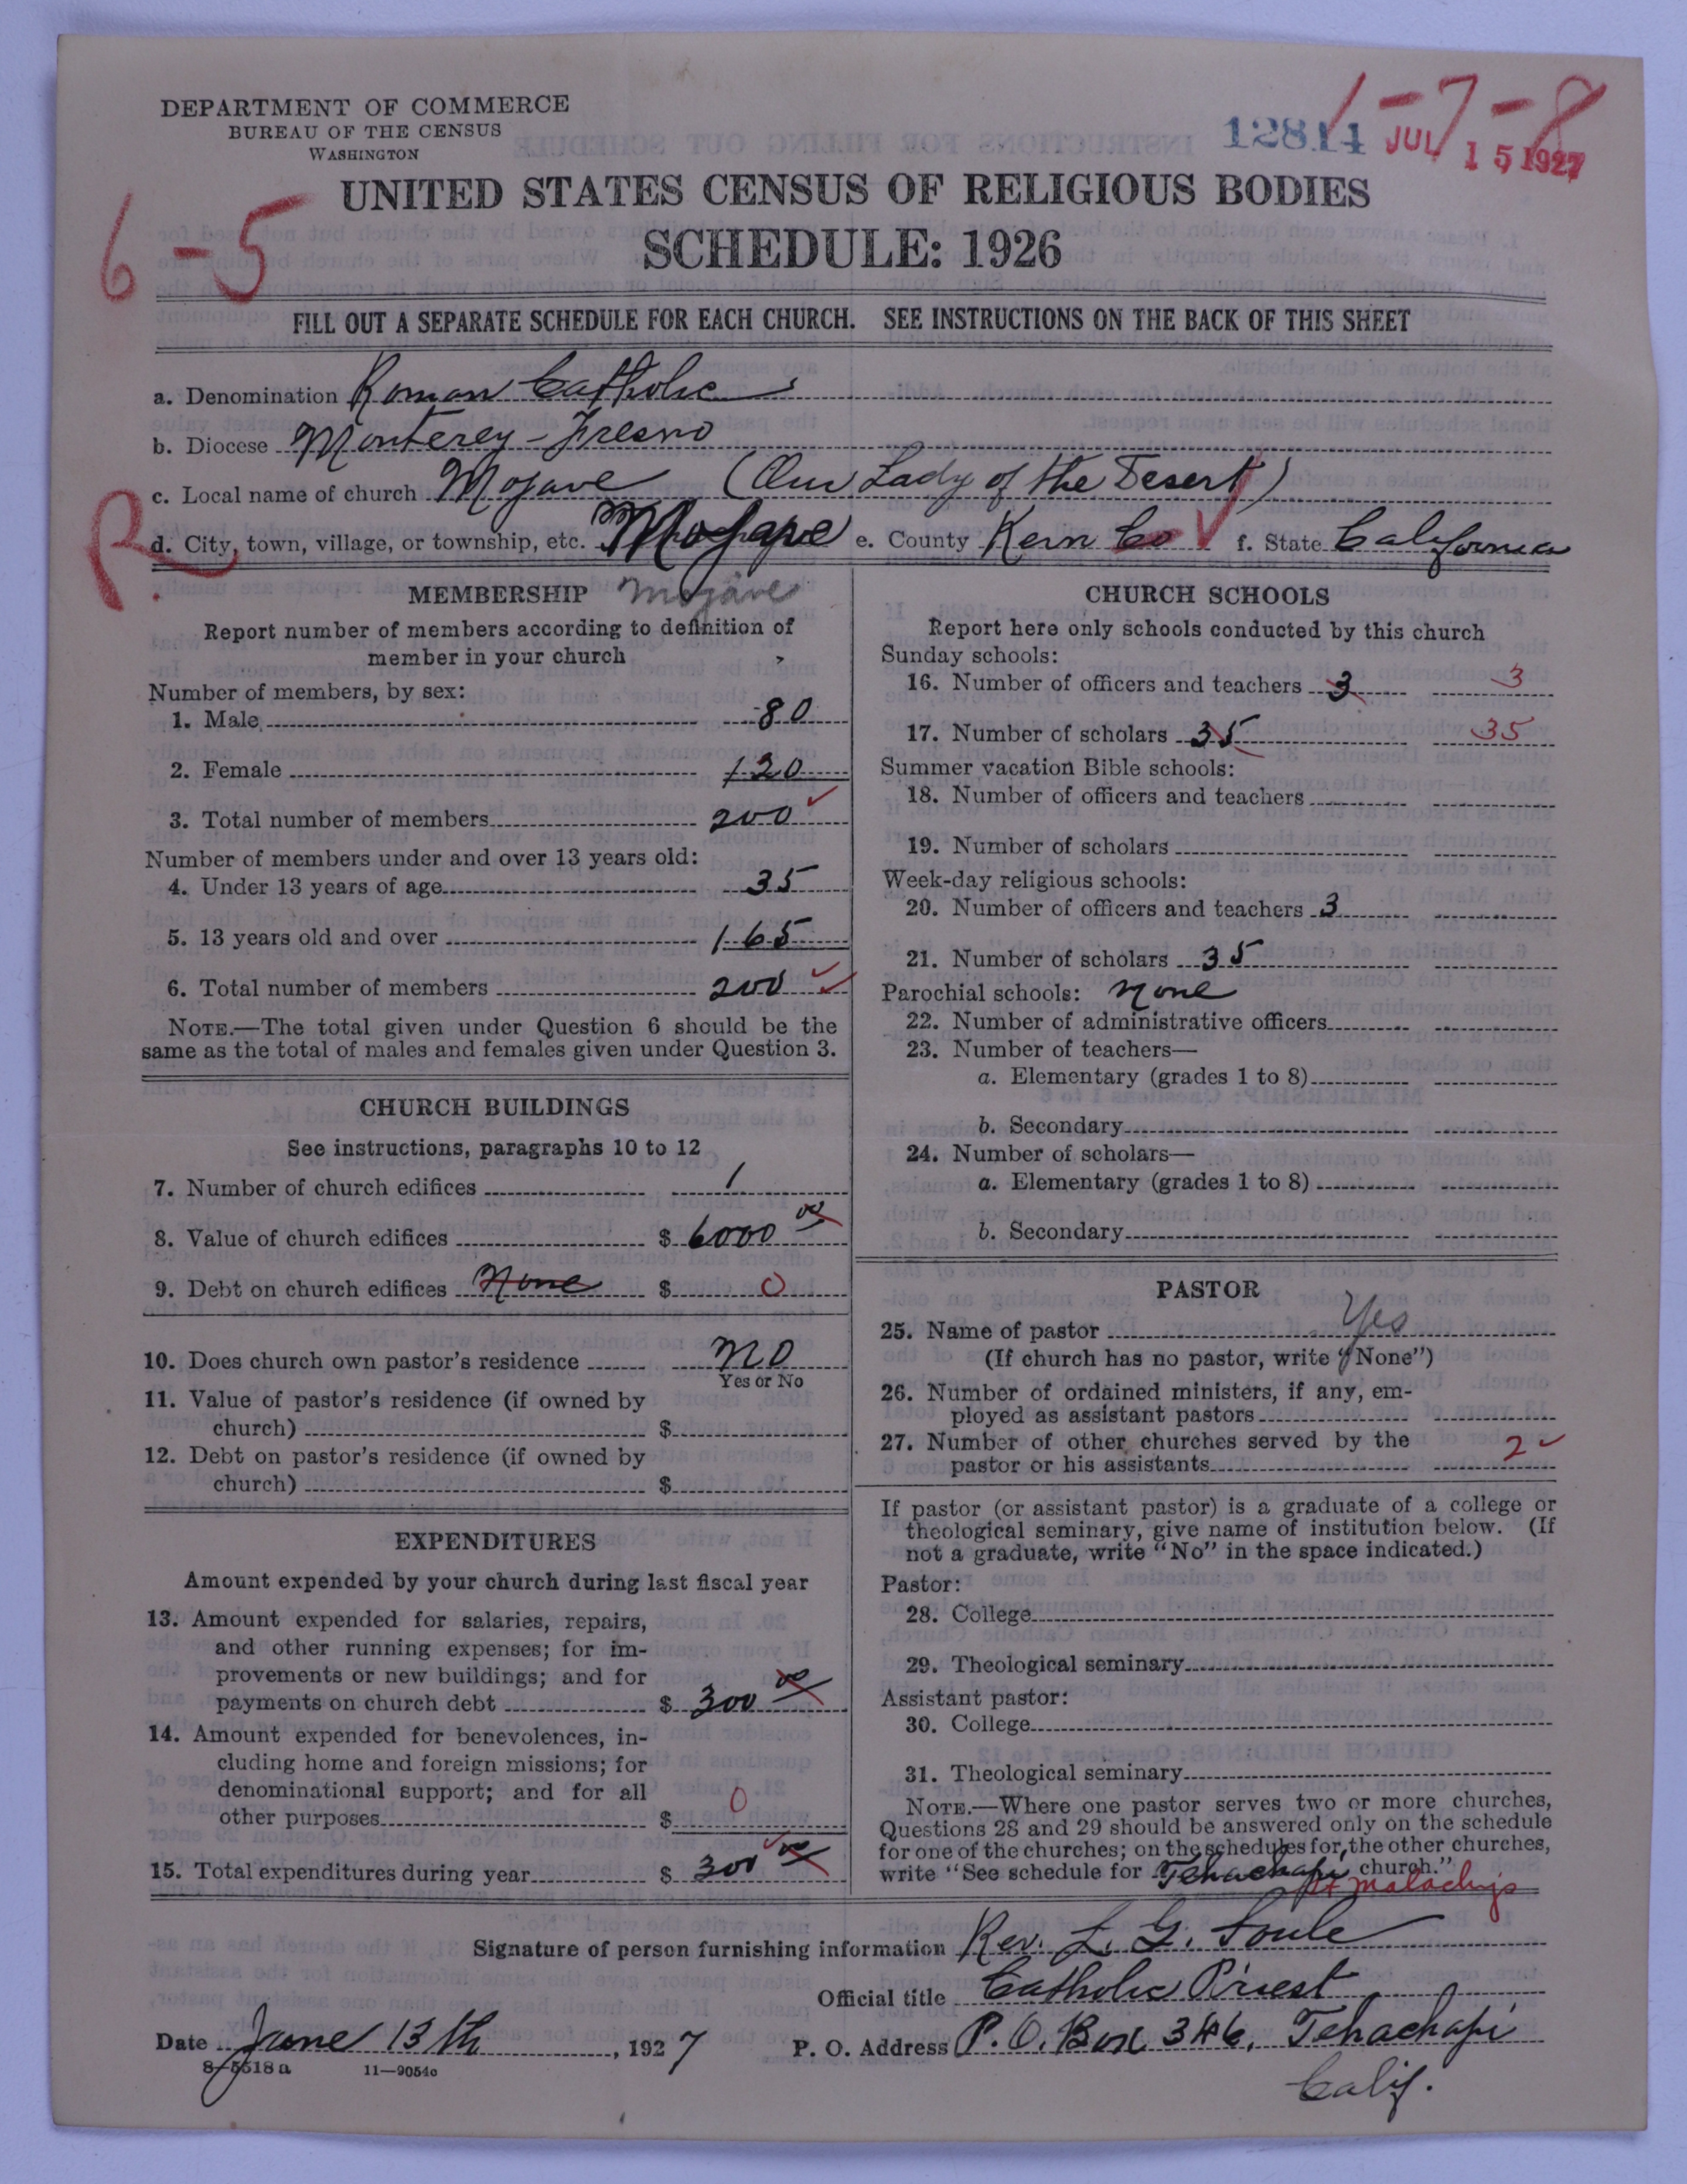 DEPARTMENT OF COMMERCE
BUREAU OF THE CENSUS
WASHINGTON
12814
1-7-8
JUL 15 1927
UNITED STATES CENSUS OF RELIGIOUS BODIES
6-5
SCHEDULE: 1926
FILL OUT A SEPARATE SCHEDULE FOR EACH CHURCH. SEE INSTRUCTIONS ON THE BACK OF THIS SHEET
a. Denomination Roman Catholic
b. Diocese Monterey-Fresno
c. Local name of church Mojave (Our Lady of the Desert)
R.
d. City, town, village, or township, etc. Mojave e. County Kern Co f. State California
MEMBERSHIP Mojave
Report number of members according to definition of
member in your church
Number of members, by sex:
1. Male 80
2. Female 120
3. Total number of members 200
Number of members under and over 13 years old:
4. Under 13 years of age 35
5. 13 years old and over 165
6. Total number of members 200
NOTE.—The total given under Question 6 should be the
same as the total of males and females given under Question 3.
CHURCH BUILDINGS
See instructions, paragraphs 10 to 12
7. Number of church edifices 1
8. Value of church edifices $ 6000 00
9. Debt on church edifices None $ 0
10. Does church own pastor's residence NO
Yes or No
11. Value of pastor's residence (if owned by
church) $
12. Debt on pastor's residence (if owned by
church) $
EXPENDITURES
Amount expended by your church during last fiscal year
13. Amount expended for salaries, repairs,
and other running expenses; for im-
provements or new buildings; and for
payments on church debt $ 300 00
14. Amount expended for benevolences, in-
cluding home and foreign missions; for
denominational support; and for all
other purposes $ 0
15. Total expenditures during year $ 300 00
CHURCH SCHOOLS
Report here only schools conducted by this church
Sunday schools:
16. Number of officers and teachers 3 3
17. Number of scholars 35 35
Summer vacation Bible schools:
18. Number of officers and teachers
19. Number of scholars
Week-day religious schools:
20. Number of officers and teachers 3
21. Number of scholars 35
Parochial schools: None
22. Number of administrative officers
23. Number of teachers—
a. Elementary (grades 1 to 8)
b. Secondary
24. Number of scholars—
a. Elementary (grades 1 to 8)
b. Secondary
PASTOR
25. Name of pastor Yes
(If church has no pastor, write "None")
26. Number of ordained ministers, if any, em-
ployed as assistant pastors
27. Number of other churches served by the
pastor or his assistants 2
If pastor (or assistant pastor) is a graduate of a college or
theological seminary, give name of institution below. (If
not a graduate, write "No" in the space indicated.)
Pastor:
28. College
29. Theological seminary
Assistant pastor:
30. College
31. Theological seminary
NOTE.—Where one pastor serves two or more churches,
Questions 28 and 29 should be answered only on the schedule
for one of the churches; on the schedules for the other churches,
write "See schedule for Tehachapi church."
St Malachys
Signature of person furnishing information Rev. L. G. Soule
Official title Catholic Priest
Date June 13th, 1927 P. O. Address P. O. Box 346, Tehachapi
Calif.
8-5518a 11-9054c